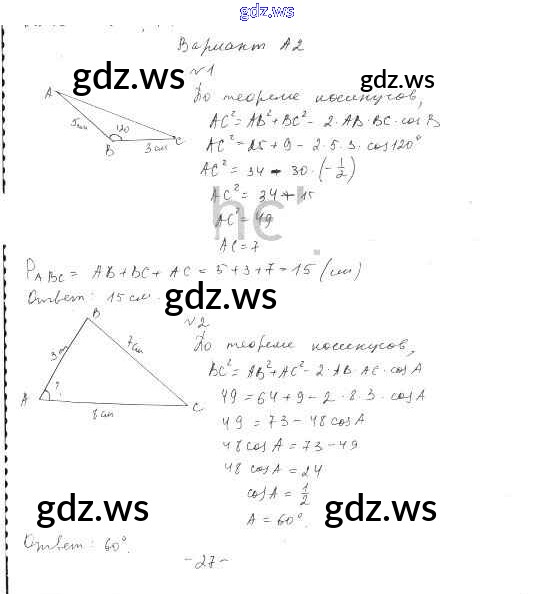 gdz.ws
Вариант А2
gdz.ws
gdz.ws
№1
По теореме косинусов,
AC² = AB² + BC² - 2·AB·BC·cosB
AC² = 25 + 9 - 2·5·3·cos120°
AC² = 34 - 30·(-1/2)
AC² = 34 + 15
AC² = 49
AC = 7
A
5 см
120
B
3 см
C
P ABC = AB + BC + AC = 5 + 3 + 7 = 15 (см)
Ответ: 15 см.
gdz.ws
gdz.ws
№2
По теореме косинусов,
BC² = AB² + AC² - 2·AB·AC·cosA
49 = 64 + 9 - 2·8·3·cosA
49 = 73 - 48cosA
48cosA = 73 - 49
48cosA = 24
cosA = 1/2
A = 60°.
B
3 см
7 см
A
?
8 см
C
gdz.ws
gdz.ws
Ответ: 60°.
- 27 -